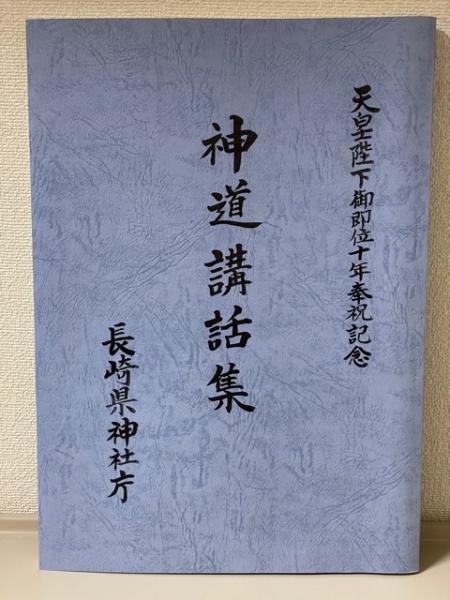 天皇陛下御即位十年奉祝記念
神道講話集
長崎県神社庁